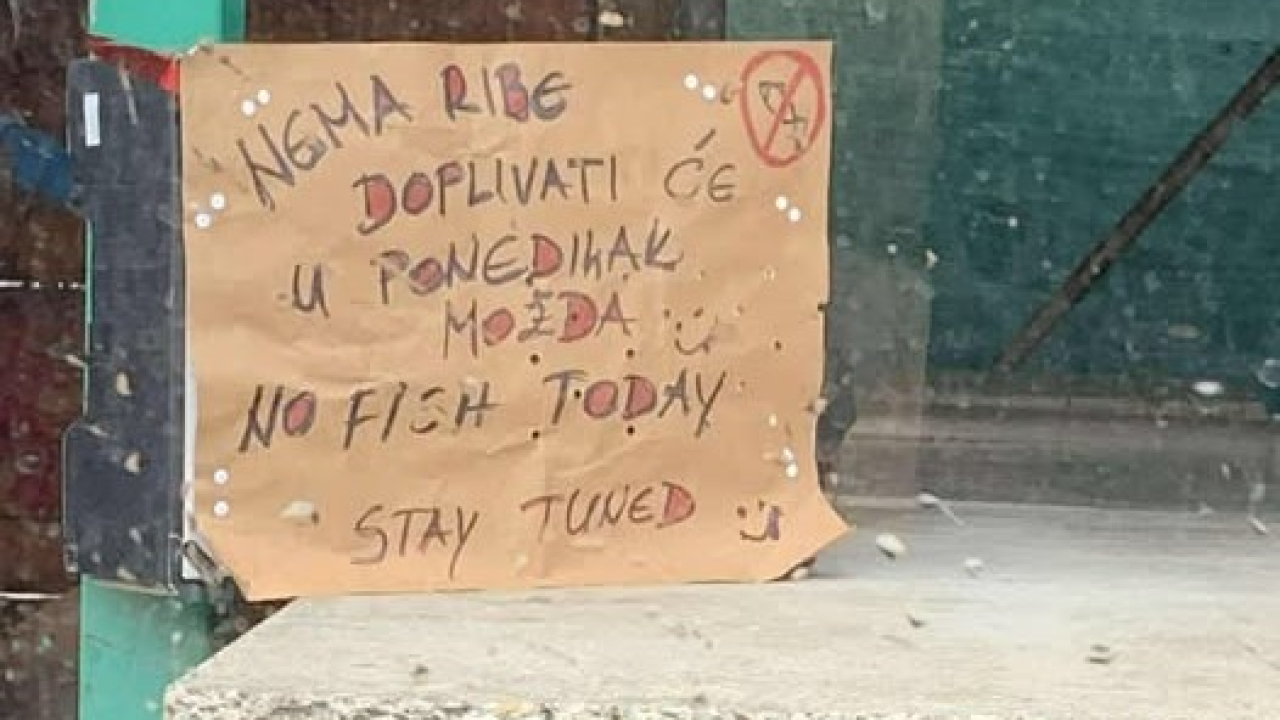 NEMA RIBE
DOPLIVATI ĆE
U PONEDILJAK
MOŽDA :)
NO FISH TODAY
STAY TUNED :)